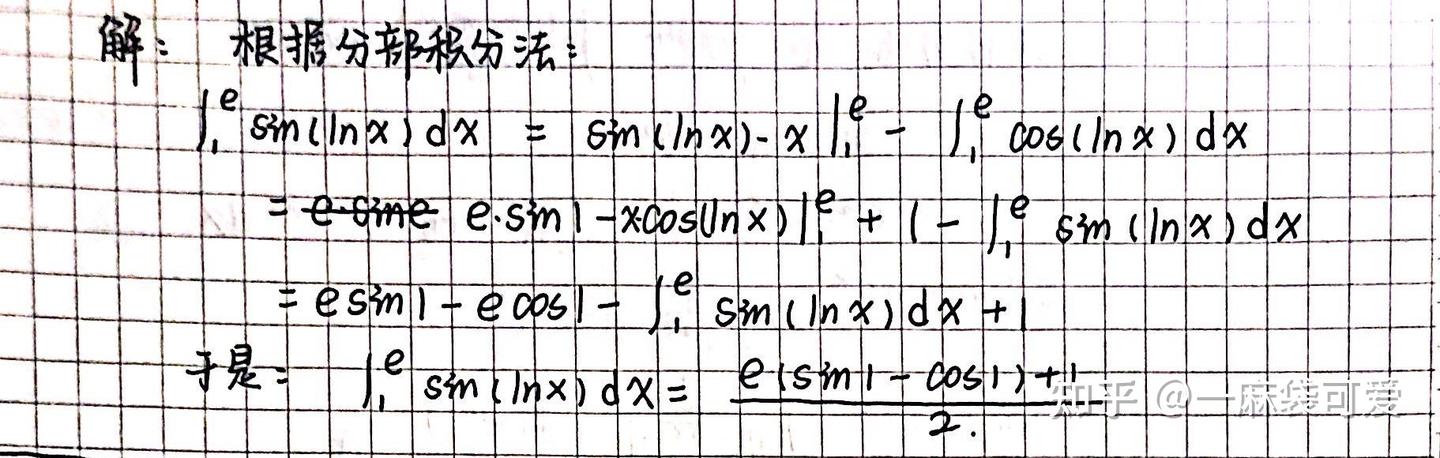 解： 根据分部积分法：
∫₁ᵉ sin(lnx) dx = sin(lnx)·x |₁ᵉ - ∫₁ᵉ cos(lnx) dx
= e·sine e·sin1 - x·cos(lnx)|₁ᵉ + 1 - ∫₁ᵉ sin(lnx) dx
= e sin1 - e cos1 - ∫₁ᵉ sin(lnx) dx + 1
于是： ∫₁ᵉ sin(lnx) dx = e(sin1 - cos1)+1 / 2.
知乎 @一麻袋可爱